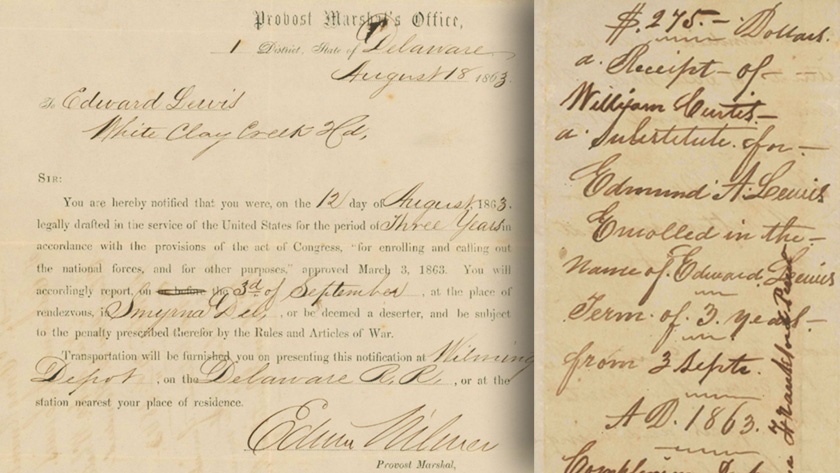 Provost Marshal's Office,
1 District, State of Delaware
August 18 1863.
To Edward Lewis
White Clay Creek Hd,
SIR:
You are hereby notified that you were, on the 12 day of August, 1863.
legally drafted in the service of the United States for the period of Three Years in
accordance with the provisions of the act of Congress, "for enrolling and calling out
the national forces, and for other purposes," approved March 3, 1863. You will
accordingly report, on or before the 3d of September, at the place of
rendezvous, in Smyrna Del, or be deemed a deserter, and be subject
to the penalty prescribed therefor by the Rules and Articles of War.
Transportation will be furnished you on presenting this notification at Wilming
Depot, on the Delaware R. R., or at the
station nearest your place of residence.
Edwin Wilmer
Provost Marshal,
$.275.- Dollars.
a Receipt of
William Curtis
a Substitute for
Edmund A. Lewis
Enrolled in the
name of Edward Lewis
Term of 3 years
from 3 Septr.
A D. 1863.